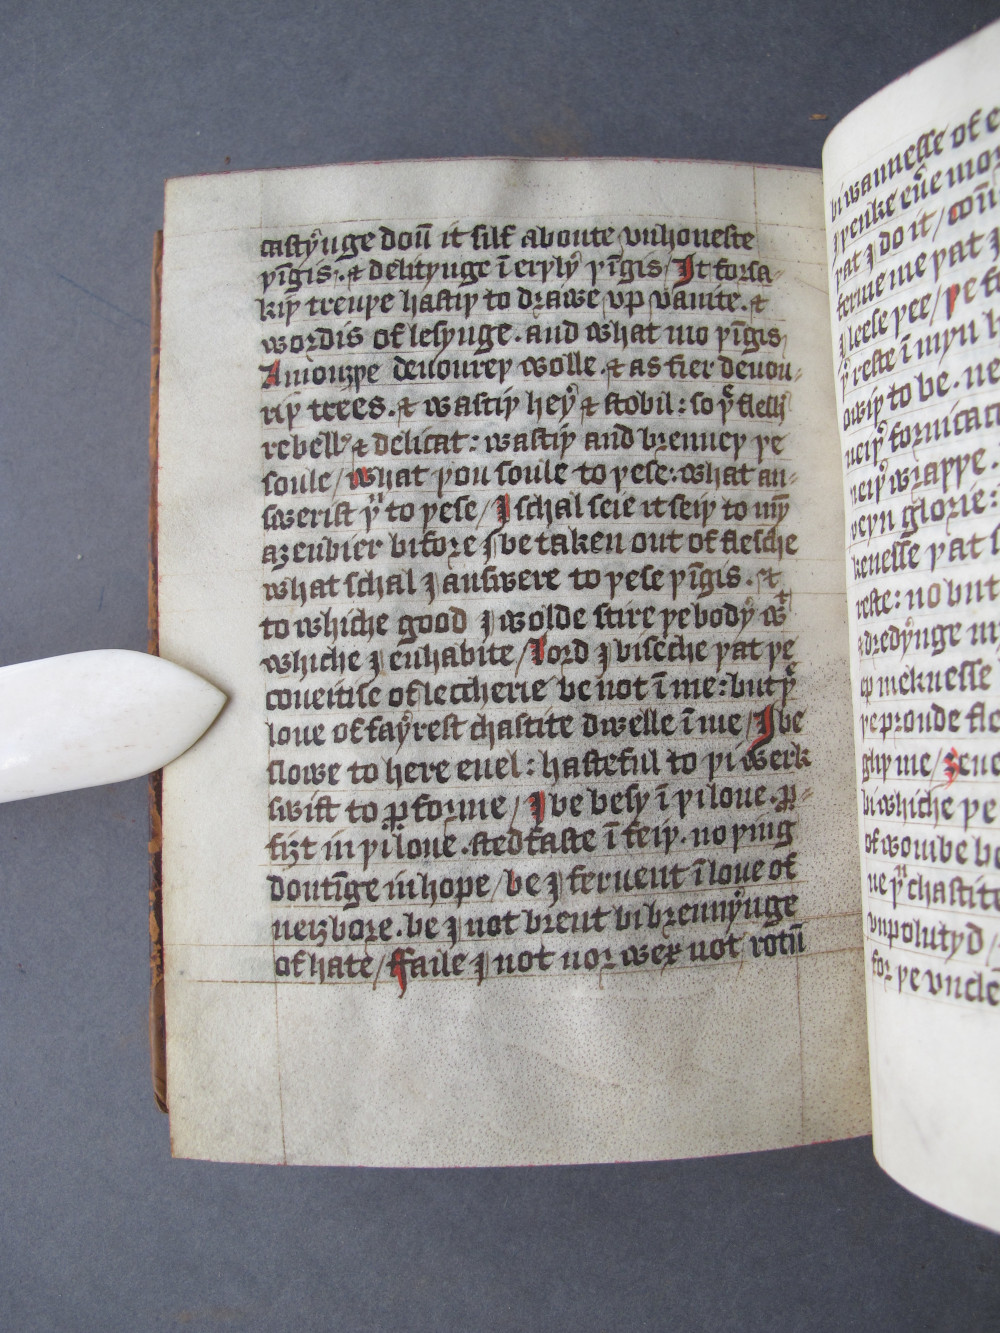 castẏnge douñ it silf aboute vnhoneste
þīgis. & delitynge ī erþlẏ þīgis / It forsa-
kiþ treuþe hastiþ to drawe vp vanite. &
wordis of lesynge. and what mo þīgis /
A mouȝþe deuoureþ wolle. & as fier deuou-
riþ trees. & wastiþ heẏ & stobil: so þͤ flesch
rebell & delicat: wastiþ and brenneþ þe
soule / What þou soule to þese: what an-
swerist þᵘ to þese / I schal seie it seiþ to mẏ
aȝenbier bifore I be taken out of flesche
what schal I answere to þese þīgis. &
to whiche good I wolde stire þe bodẏ wᵗ
whiche I enhabite / Lord I biseche þat þe
coueitise of leccherie be not ī me: but þͤ
loue of faẏrest chastite dwelle ī me / I be
slowe to here euel: hasteful to þi werk
swift to ꝑforme / I be besy ī þi loue. ꝑ-
fiȝt in þi loue. stedfaste ī feiþ. no þing
doutīge in hope / be I feruent ī loue of
neiȝbore. be I not brent bi brennẏnge
of hate / Faile I not nor wex not rotū
bi wannesse of
I þenke eue mor
þat I do it /
ferme me þat I
I leese þee / þe
reste ī myn
owiþ to be. ne
neiþ fornicac
neiþ wrappe.
veyn glorie:
kenesse þat
reste: no but
dredẏnge
meknesse
þe proude
me /
bi whiche þe
of wombe be
ne þͤ chastite
vnpolutyd /
for þe vncle